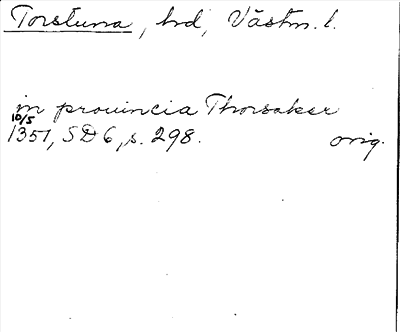 Torstuna, hd, Västm. l.
in prouincia Thorsaker
10/5
1351, SD 6, s. 298. orig.